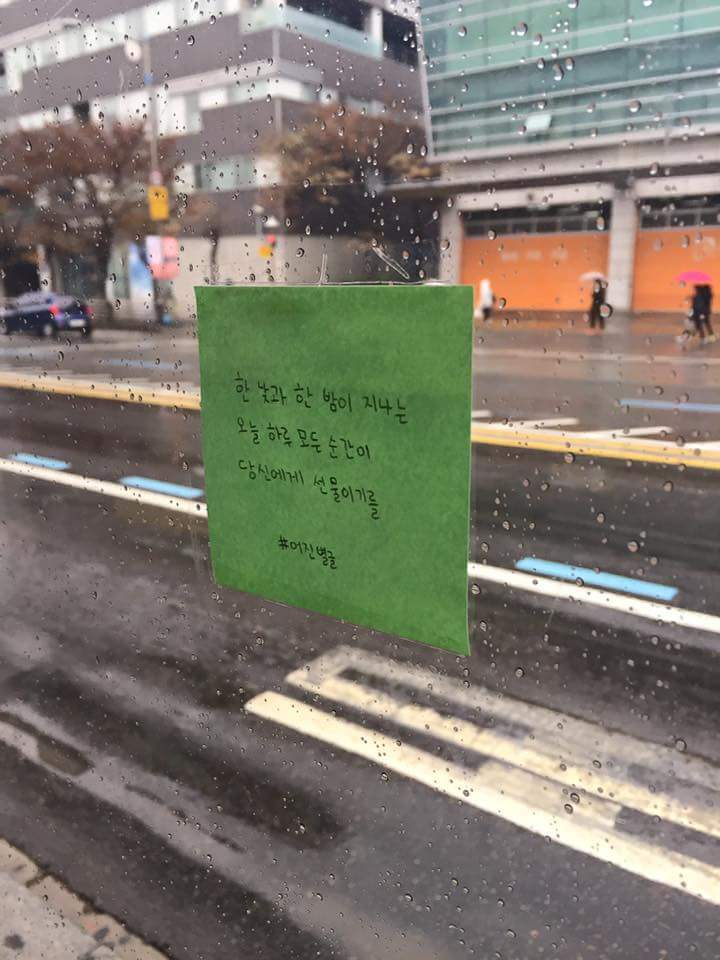 한 낮과 한 밤이 지나는
오늘 하루 모두 순간이
당신에게 선물이기를
#어진별글